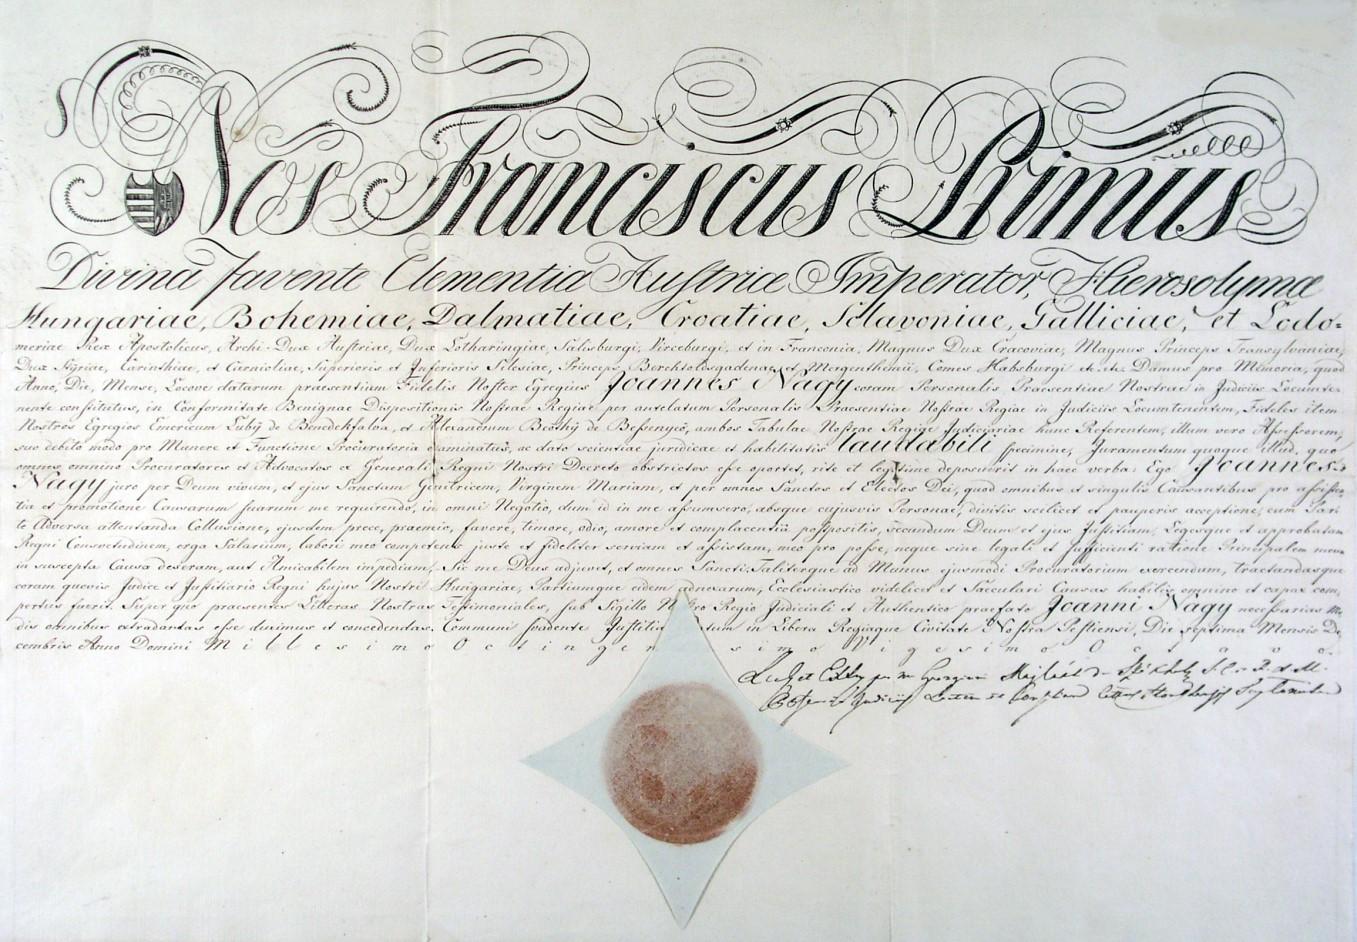 Nos Franciscus Primus
Divina favente Clementia Austriae Imperator, Hierosolymae
Hungariae, Bohemiae, Dalmatiae, Croatiae, Sclavoniae, Galliciae, et Lodo-
meriae Rex Apostolicus, Archi-Dux Austriae, Dux Lotharingiae, Salisburgi, Virceburgi, et in Franconia, Magnus Dux Cracoviae, Magnus Princeps Transylvaniae,
Dux Styriae, Carinthiae et Carnioliae, Superioris et Inferioris Silesiae, Princeps Berchtolsgadenae, et Mergenthemii, Comes Habsburgi et. et. Damus pro Memoria, quod
Anno, Die, Mense, Locove datarum praesentium Fidelis Noster Egregius Joannes Nagy coram Personalis Praesentiae Nostrae in Judiciis Locumte-
nente constitutus, in Conformitate Benignae Dispositionis Nostrae Regiae per antelatum Personalis Praesentiae Nostrae Regiae in Judiciis Locumtenentem, Fideles item
Nostros Egregios Emericum Luby de Benedekfalva, et Alexandrum de ambos Tabulae Nostrae Regiae Judiciariae hunc Referentem, illum vero Assessorem,
suo debito modo pro Munere et Functione Procuratoria examinatus, ac dato scientiae juridicae et habilitatis laudabili specimine, Juramentum quoque illud, quo
omnes omnino Procuratores et Advocatos ex Generali Regni Nostri Decreto obstrictos esse oportet, rite et legitime deposuerit in haec verba: Ego Joannes
Nagy juro per Deum vivum, et ejus Sanctam Genitricem, Virginem Mariam, et per omnes Sanctos et Electos Dei, quod omnibus et singulis Causantibus pro assisten-
tia et promotione Causarum suarum me requirendo, in omni Negotio, dum id in me assumsero, absque cujusvis Personae, divitis scilicet et pauperis acceptione, cum Par-
te Adversa attentanda Collusione, ejusdem prece, praemio, favore, timore, odio, amore et complacentia postpositis, secundum Deum et ejus Justitiam, Legesque et approbatam
Regni Consvetudinem, erga Salarium, labori meo competens juste et fideliter serviam et assistam, meo pro posse, neque sine legali et sufficienti ratione Principalem meum
in suscepta Causa deseram, aut Amicabilem impediam. Sic me Deus adjuvet, et omnes Sancti. Taliterque ad Munus ejusmodi Procuratorium exercendum, tractandasque
coram quovis Judice et Justitiario Regni hujus Nostri Hungariae, Partiumque eidem adnexarum, Ecclesiastico videlicet et Saeculari Causas habilis omnino et capax com-
pertus fuerit. Super quo praesentes Litteras Nostras Testimoniales, sub Sigillo Nostro Regio Judiciali et Authentico praefato Joanni Nagy necessarias
dis omnibus extendantas esse duximus et concedendas. Communi svadente Justitia. Datum in Libera Regiaque Civitate Nostra Pestiensi, Die septima Mensis De-
cembris Anno Domini Millesimo Octingen simo
Georgium Majláth de Székhely